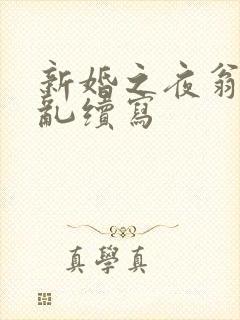 新婚之夜翁
亂續寫
真學真